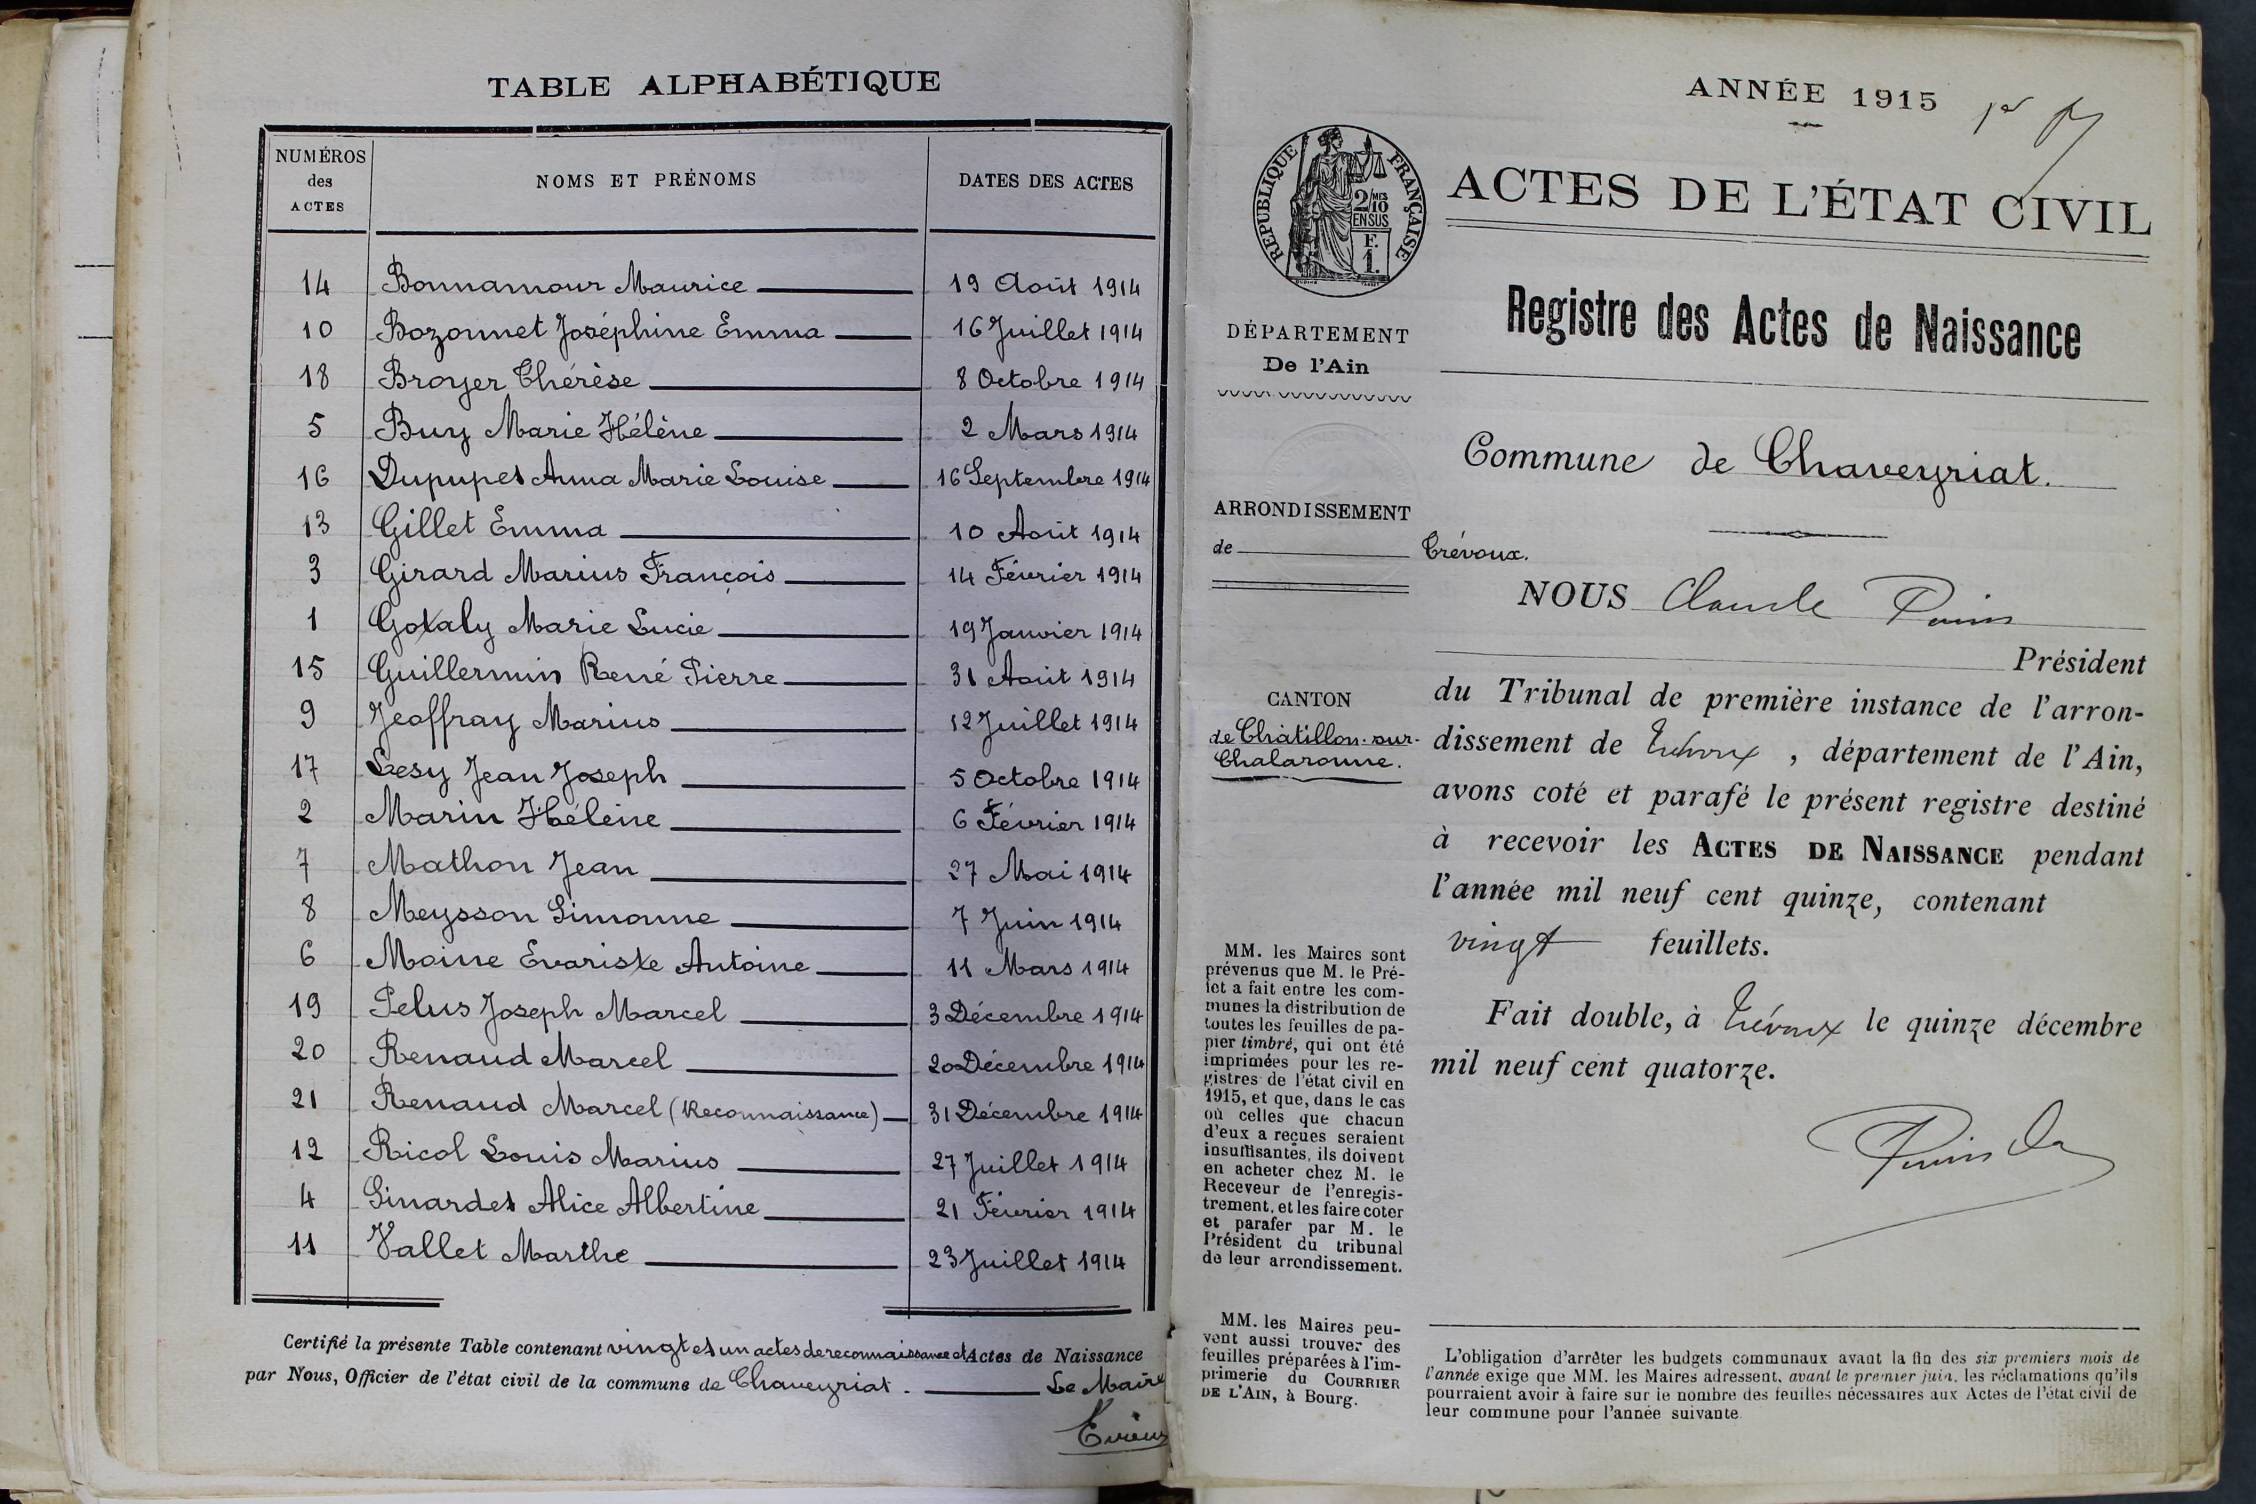 TABLE ALPHABÉTIQUE
NUMÉROS des ACTES NOMS ET PRÉNOMS DATES DES ACTES
14 Bonnamour Maurice 19 Août 1914
10 Bozonnet Joséphine Emma 16 Juillet 1914
18 Broyer Thérèse 8 Octobre 1914
5 Buy Marie Hélène 2 Mars 1914
16 Dupupet Anna Marie Louise 16 Septembre 1914
13 Gillet Emma 10 Août 1914
3 Girard Marius François 14 Février 1914
1 Goxaly Marie Lucie 19 Janvier 1914
15 Guillermin René Pierre 31 Août 1914
9 Jeoffray Marius 12 Juillet 1914
17 Lesy Jean Joseph 5 Octobre 1914
2 Marin Hélène 6 Février 1914
7 Mathon Jean 27 Mai 1914
8 Meysson Simonne 7 Juin 1914
6 Moine Evariste Antoine 11 Mars 1914
19 Pelus Joseph Marcel 3 Décembre 1914
20 Renaud Marcel 20 Décembre 1914
21 Renaud Marcel (Reconnaissance) 31 Décembre 1914
12 Ricol Louis Marius 27 Juillet 1914
4 Sinardet Alice Albertine 21 Février 1914
11 Vallet Marthe 23 Juillet 1914
Certifié la présente Table contenant vingt et un actes de reconnaissance et Actes de Naissance
par Nous, Officier de l'état civil de la commune de Chaveyriat. Le Maire
ANNÉE 1915
RÉPUBLIQUE FRANÇAISE
2/10 MES
EN SUS
F.
1.
ACTES DE L'ÉTAT CIVIL
Registre des Actes de Naissance
DÉPARTEMENT
De l'Ain
Commune de Chaveyriat.
ARRONDISSEMENT
de Trévoux.
CANTON
de Châtillon-sur-
Chalaronne.
NOUS Claude
Président
du Tribunal de première instance de l'arron-
dissement de Trévoux, département de l'Ain,
avons coté et parafé le présent registre destiné
à recevoir les ACTES DE NAISSANCE pendant
l'année mil neuf cent quinze, contenant
vingt feuillets.
Fait double, à Trévoux le quinze décembre
mil neuf cent quatorze.
MM. les Maires sont
prévenus que M. le Pré-
fet a fait entre les com-
munes la distribution de
toutes les feuilles de pa-
pier timbré, qui ont été
imprimées pour les re-
gistres de l'état civil en
1915, et que, dans le cas
où celles que chacun
d'eux a reçues seraient
insuffisantes, ils doivent
en acheter chez M. le
Receveur de l'enregis-
trement, et les faire coter
et parafer par M. le
Président du tribunal
de leur arrondissement.
MM. les Maires peu-
vent aussi trouver des
feuilles préparées à l'im-
primerie du COURRIER
DE L'AIN, à Bourg.
L'obligation d'arrêter les budgets communaux avant la fin des six premiers mois de
l'année exige que MM. les Maires adressent, avant le premier juin, les réclamations qu'ils
pourraient avoir à faire sur le nombre des feuilles nécessaires aux Actes de l'état civil de
leur commune pour l'année suivante